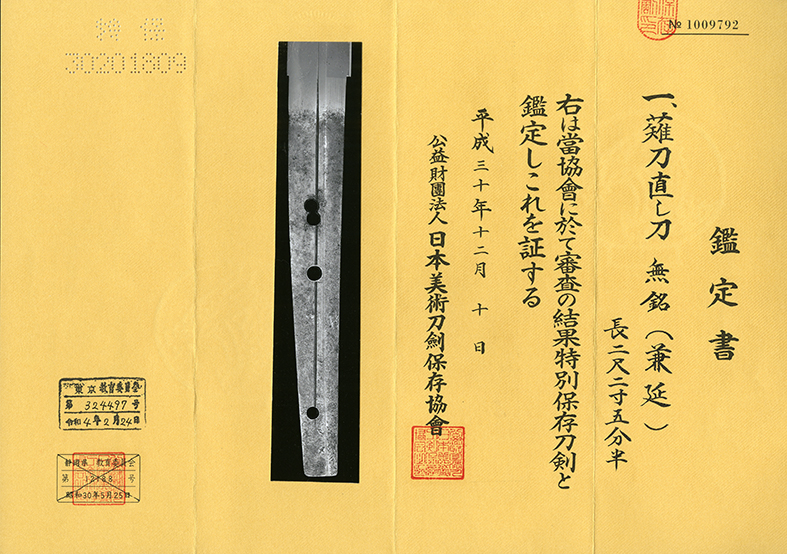 № 1009792
鑑定書
一、薙刀直し刀 無銘(兼延)
長二尺二寸五分半
右は當協會に於て審査の結果特別保存刀剣と
鑑定しこれを証する
平成三十年十二月 十 日
公益財團法人 日本美術刀劍保存協會
特 保
30201809
東京教育委員会
第 324497 号
令和4年2月24日
静岡県 教育委員会
第 12188 号
昭和30年5月25日